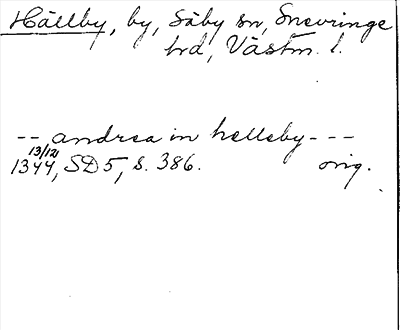 Hällby, by, Säby sn, Snevringe
hrd, Västm. l.
-- andrea in helleby ---
13/12
1344, SD 5, s. 386. orig.